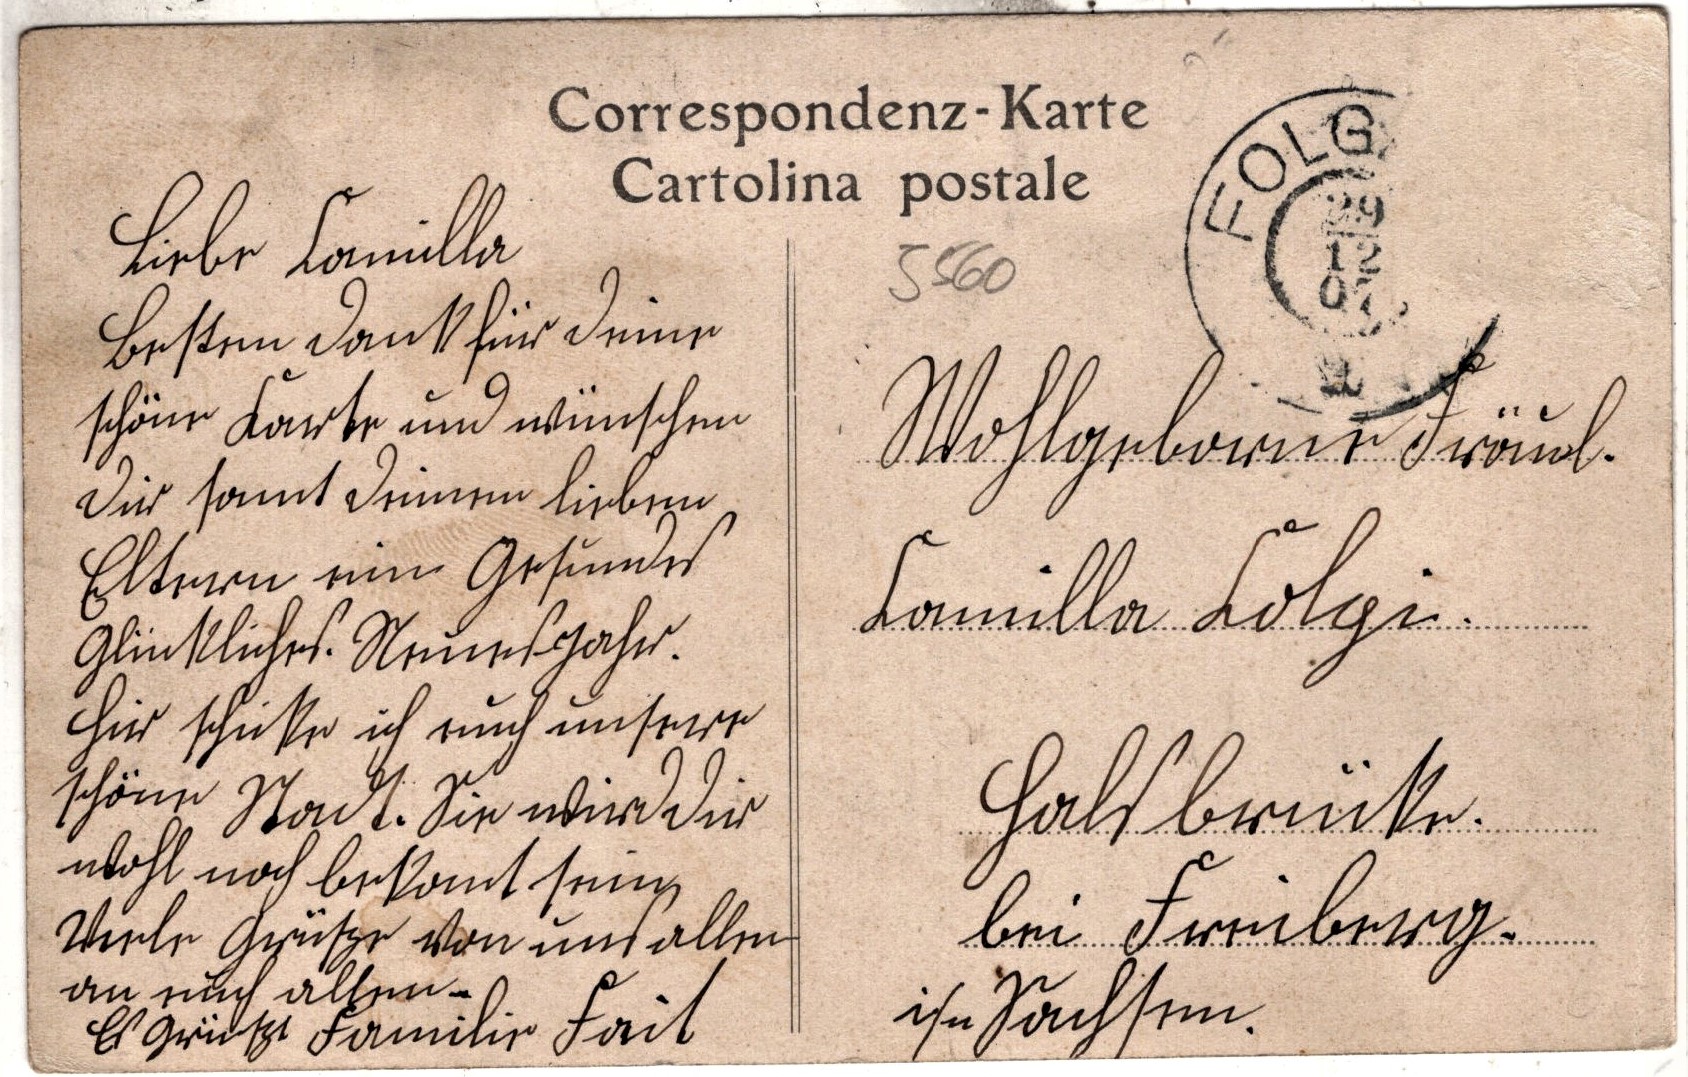 Correspondenz-Karte
Cartolina postale
FOLG
29
12
0
5560
Liebe Camilla
Besten Dank für Deine
schöne Karte und wünschen
Dir samt Deinen lieben
Eltern ein Gesundes
Glückliches. Neues Jahr.
Hier schicke ich euch unsere
schöne Stadt. Sie wird Dir
wohl noch bekant sein
Viele Grüße von uns allen
an euch allen-
Es Grüßt Familie Fait
Wohlgeborne Fräul.
Camilla Colgi.
Halsbrücke.
bei Freiberg.
i/n Sachsen.